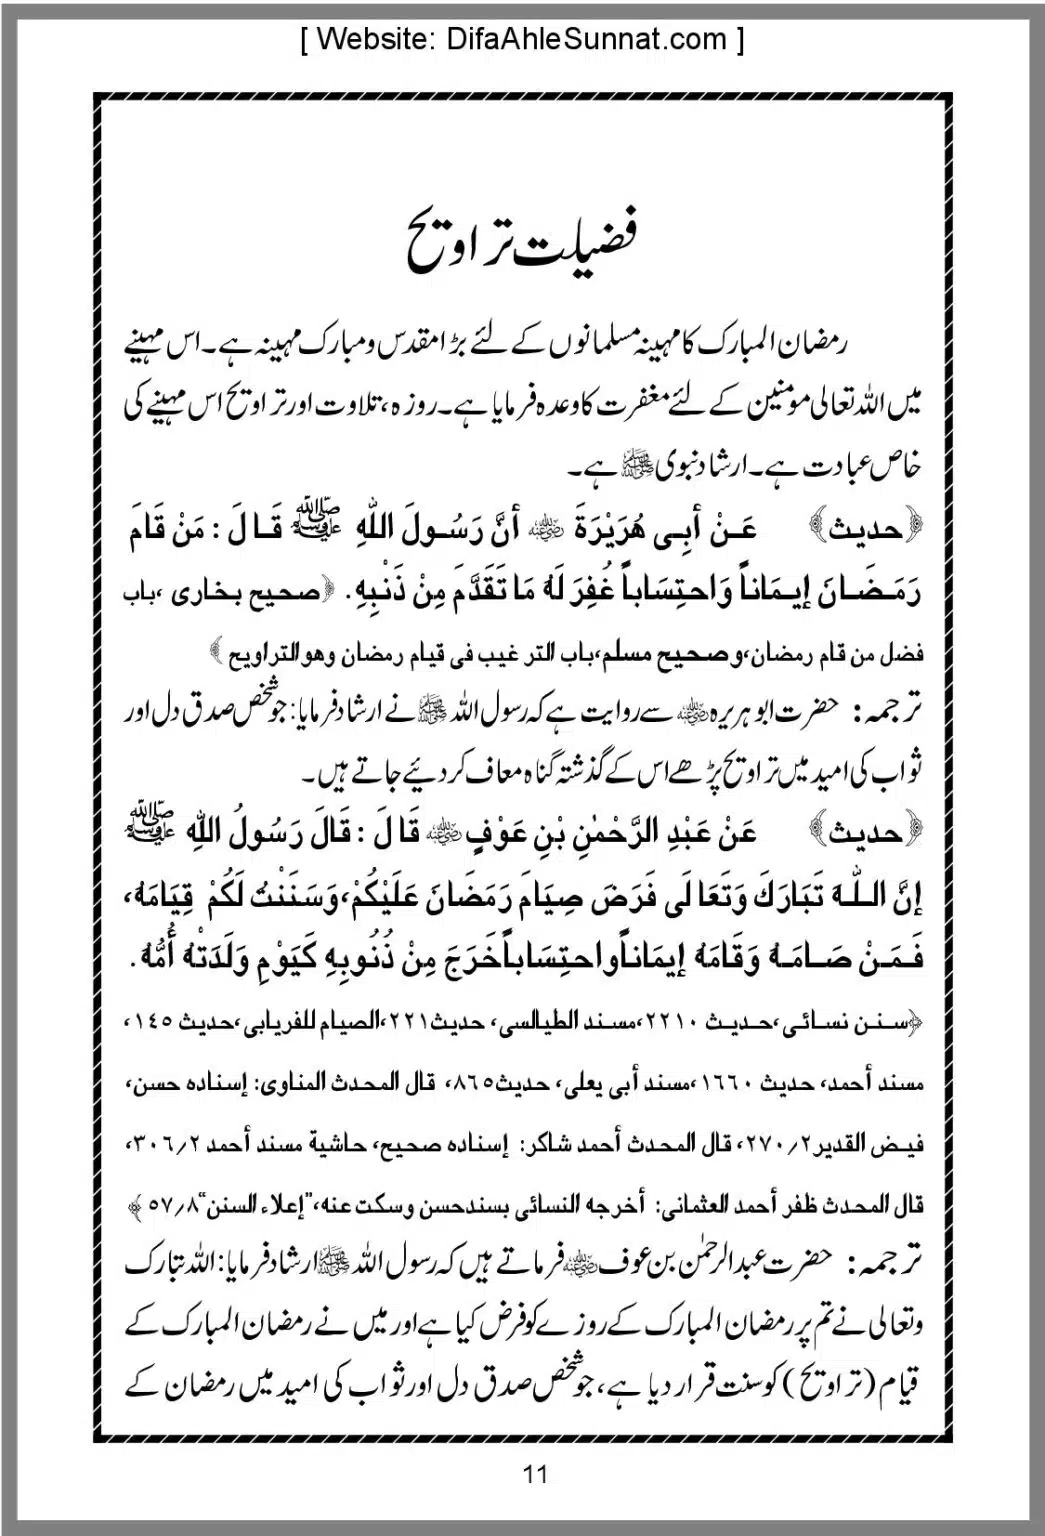 [ Website: DifaAhleSunnat.com ]
فضیلت تراویح
رمضان المبارک کا مہینہ مسلمانوں کے لئے بڑا مقدس و مبارک مہینہ ہے۔ اس مہینے
میں اللہ تعالیٰ مومنین کے لئے مغفرت کا وعدہ فرمایا ہے۔ روزہ، تلاوت اور تراویح اس مہینے کی
خاص عبادت ہے۔ ارشاد نبوی ﷺ ہے۔
﴿حدیث﴾ عَنْ أَبِی هُرَیْرَةَ ؓ أنَّ رَسُولَ اللّٰهِ ﷺ قَالَ : مَنْ قَامَ
رَمَضَانَ إیمَاناً وَاحتِسَاباً غُفِرَ لَهُ مَا تَقَدَّمَ مِنْ ذَنْبِهِ. ﴿صحیح بخاری ،باب
فضل من قام رمضان،وصحیح مسلم،باب الترغیب فی قیام رمضان وهو التراویح﴾
ترجمہ: حضرت ابو ہریرہ ؓ سے روایت ہے کہ رسول اللہ ﷺ نے ارشاد فرمایا: جو شخص صدق دل اور
ثواب کی امید میں تراویح پڑھے اس کے گذشتہ گناہ معاف کر دئیے جاتے ہیں۔
﴿حدیث﴾ عَنْ عَبْدِ الرَّحْمٰنِ بْنِ عَوْفٍ ؓ قَالَ : قَالَ رَسُولُ اللّٰهِ ﷺ
إنَّ اللّٰهَ تَبَارَكَ وَتَعَالَی فَرَضَ صِیَامَ رَمَضَانَ عَلَیْكُمْ،وَسَنَنْتُ لَكُمْ قِیَامَهُ،
فَمَنْ صَامَهُ وَقَامَهُ إیمَاناً واحتِسَاباً خَرَجَ مِنْ ذُنُوبِهِ كَیَوْمِ وَلَدَتْهُ أُمُّهُ.
﴿سنن نسائی،حدیث ٢٢١٠،مسند الطیالسی، حدیث٢٢١،الصیام للفریابی،حدیث ١٤٥،
مسند أحمد، حدیث ١٦٦٠،مسند أبی یعلی، حدیث٨٦٥، قال المحدث المناوی: إسناده حسن،
فیض القدیر٢؍٢٧٠، قال المحدث أحمد شاكر: إسناده صحیح، حاشیة مسند أحمد ٢؍٣٠٦،
قال المحدث ظفر أحمد العثمانی: أخرجه النسائی بسند حسن وسكت عنه،"إعلاء السنن"٨؍٥٧﴾
ترجمہ: حضرت عبد الرحمٰن بن عوف ؓ فرماتے ہیں کہ رسول اللہ ﷺ ارشاد فرمایا: اللہ تبارک
وتعالیٰ نے تم پر رمضان المبارک کے روزے کو فرض کیا ہے اور میں نے رمضان المبارک کے
قیام (تراویح) کو سنت قرار دیا ہے، جو شخص صدق دل اور ثواب کی امید میں رمضان کے
11